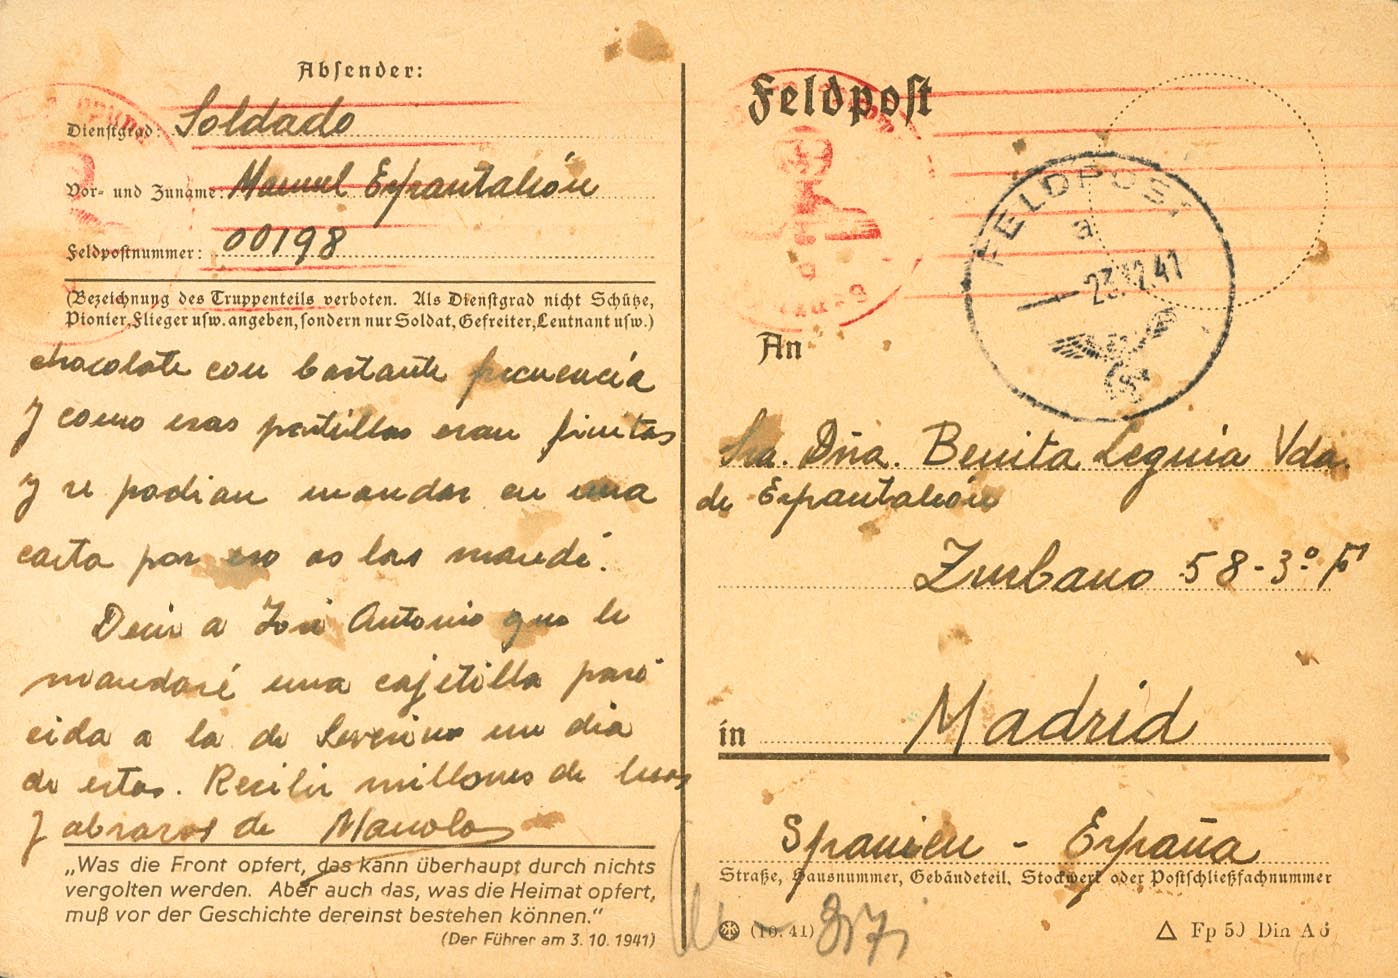 Absender:
Dienstgrad: Soldado
Vor- und Zuname: Manuel Espantaleón
Feldpostnummer: 00198
(Bezeichnung des Truppenteils verboten. Als Dienstgrad nicht Schütze,
Pionier, Flieger usw. angeben, sondern nur Soldat, Gefreiter, Leutnant usw.)
chocolate con bastante frecuencia
y como esas pastillas eran finitas
y se podian mandar en una
carta por eso os las mandé.
Decir a José Antonio que le
mandaré una cajetilla pare
cida a la de Severino un dia
de estos. Recibir millones de besos
y abrazos de Manolo
„Was die Front opfert, das kann überhaupt durch nichts
vergolten werden. Aber auch das, was die Heimat opfert,
muß vor der Geschichte dereinst bestehen können.“
(Der Führer am 3. 10. 1941)
Feldpost
FELDPOST
a
23.12.41
An
Sra. Dña. Benita Leguia Vda.
de Espantaleón
Zurbano 58-3º
in Madrid
Spanien - España
Straße, Hausnummer, Gebäudeteil, Stockwerk oder Postschließfachnummer
(10. 41)
Fp 50 Din A6